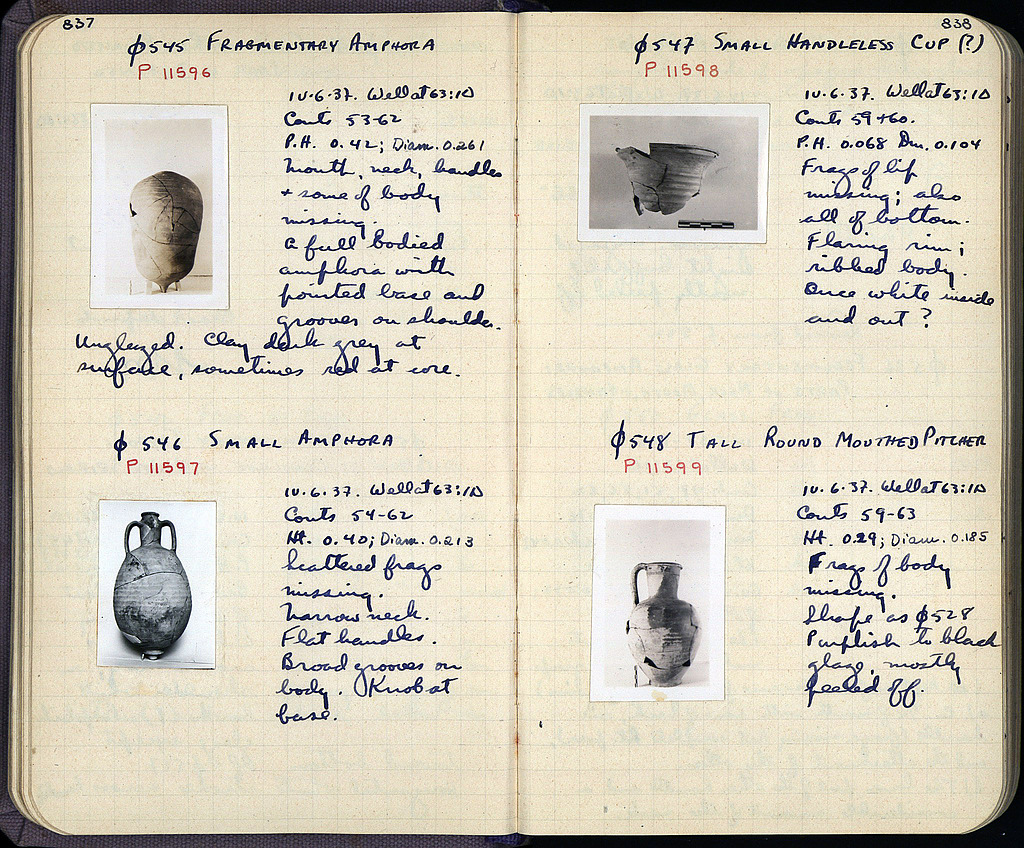 837
ϕ545 FRAGMENTARY AMPHORA
P 11596
10.6.37. Well at 63:ΙΔ
Conts 53-62
P.H. 0.42; Diam. 0.261
Mouth, neck, handles
+ some of body
missing.
A full bodied
amphora with
pointed base and
grooves on shoulder.
Unglazed. Clay dark grey at
surface, sometimes red at core.
ϕ 546 SMALL AMPHORA
P 11597
10.6.37. Well at 63:ΙΔ
Conts 54-62
Ht. 0.40; Diam. 0.213
Scattered frags
missing.
Narrow neck.
Flat handles.
Broad grooves on
body. Knob at
base.
838
ϕ547 SMALL HANDLELESS CUP (?)
P 11598
10.6.37. Well at 63:ΙΔ
Conts 59+60.
P.H. 0.068 Dm. 0.104
Frags of lip
missing; also
all of bottom.
Flaring rim;
ribbed body.
Once white inside
and out?
ϕ548 TALL ROUND MOUTHED PITCHER
P 11599
10.6.37. Well at 63:ΙΔ
Conts 59-63
Ht. 0.29; Diam. 0.185
Frags of body
missing.
Shape as ϕ528
Purplish to black
glaze, mostly
peeled off.